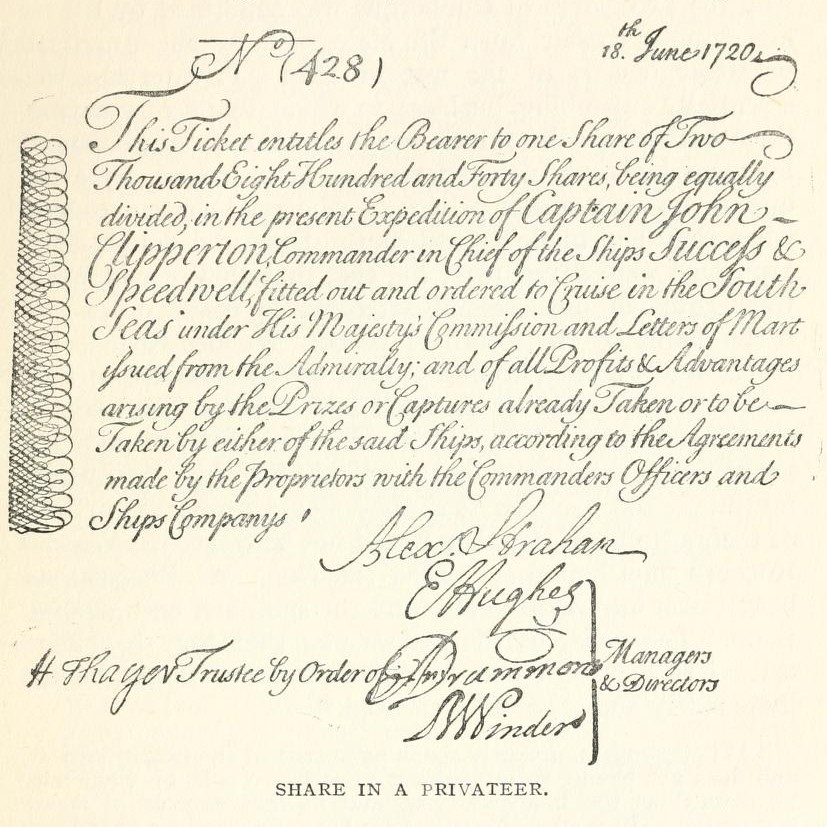 No (428)
18.th June 1720
This Ticket entitles the Bearer to one Share of Two
Thousand Eight Hundred and Forty Shares, being equally
divided, in the present Expedition of Captain John
Clipperton, Commander in Chief of the Ships Success &
Speedwell, fitted out and ordered to Cruise in the South
Seas under His Majesty's Commission and Letters of Mart
issued from the Admiralty; and of all Profits & Advantages
arising by the Prizes or Captures already Taken or to be
Taken by either of the said Ships, according to the Agreements
made by the Proprietors with the Commanders Officers and
Ships Companys
Alex.
E Hughes
H Thayer Trustee by Order of
Winder
Managers
& Directors
SHARE IN A PRIVATEER.